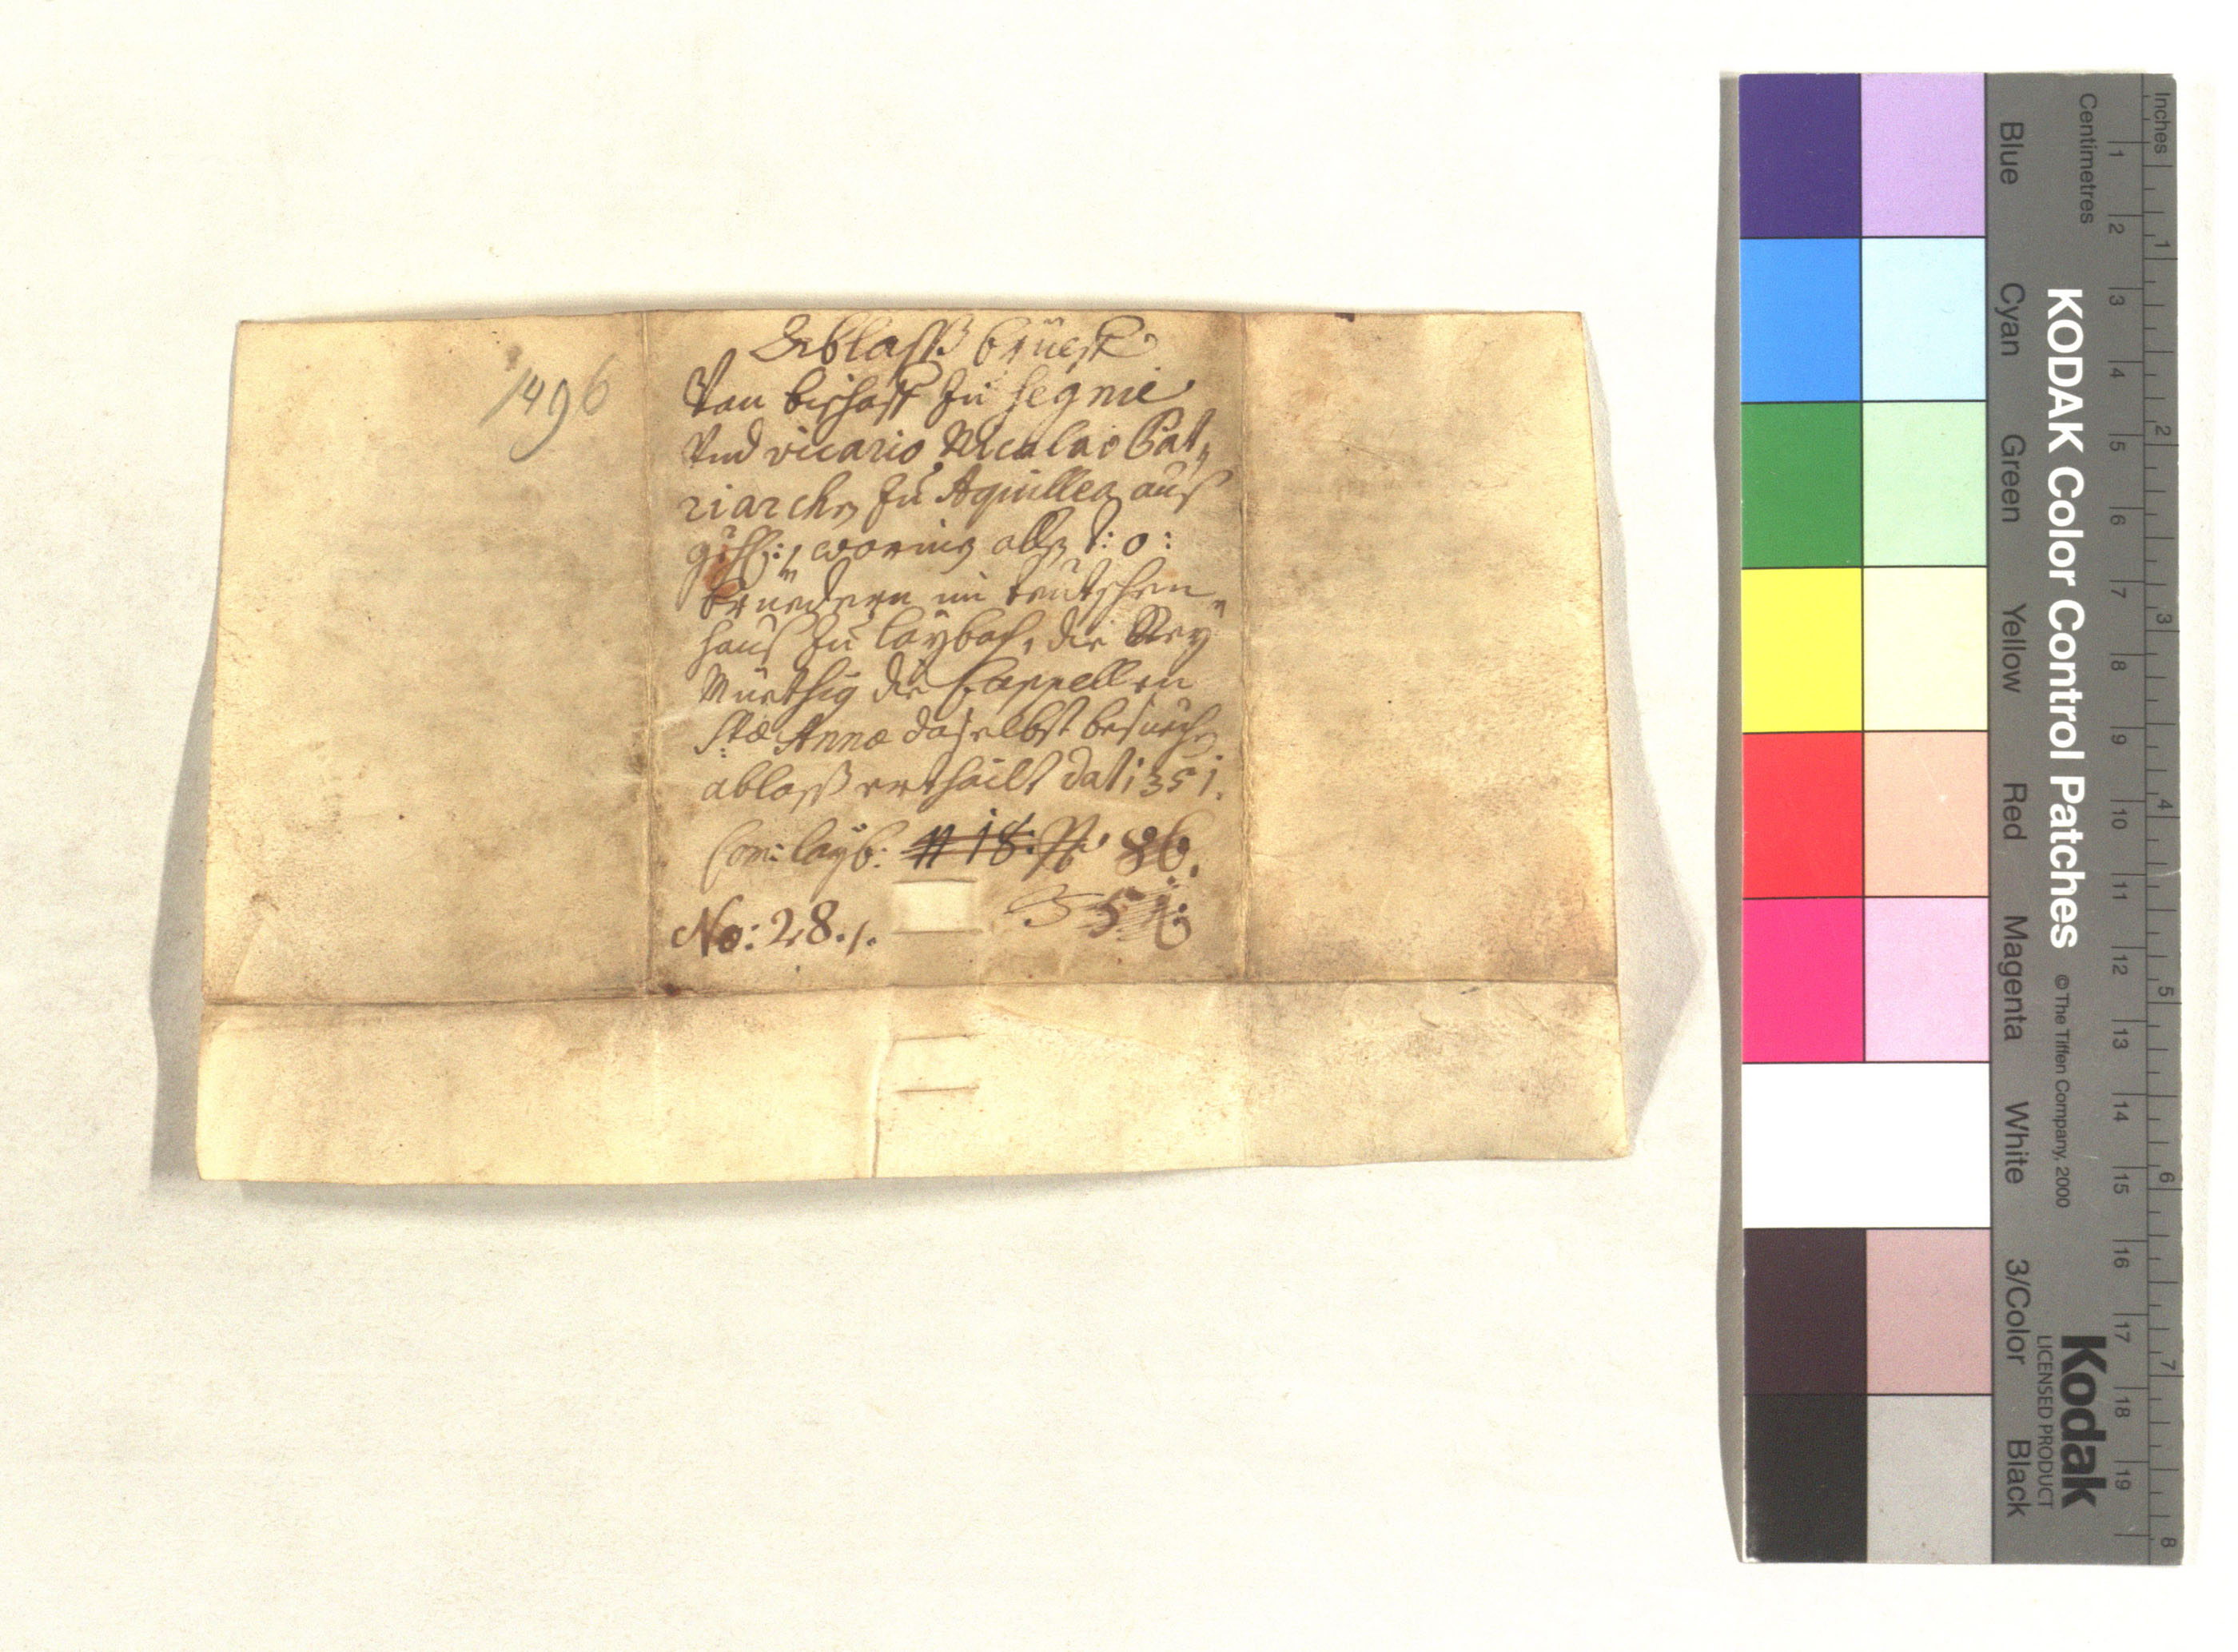 1496
Ablaß brüeff
Von bischoff zu segnie
Vnd vicario Nicolao Pat„
riarchen zu Aquillea auß
gehl: worinen allen t: o:
Brüedern im teütschen„
hauß zu laÿbach, die Rey
Müethig die Cappellen
Stæ Annæ daselbst besuechen
ablaß erthailt dat i35i.
Com: laÿb: # 18. 86.
No: 28./.
35
Inches
Centimetres
1 2 3 4 5 6 7 8 9 10 11 12 13 14 15 16 17 18 19
1 2 3 4 5 6 7 8
Blue Cyan Green Yellow Red Magenta White 3/Color Black
KODAK Color Control Patches © The Tiffen Company, 2000
Kodak
LICENSED PRODUCT